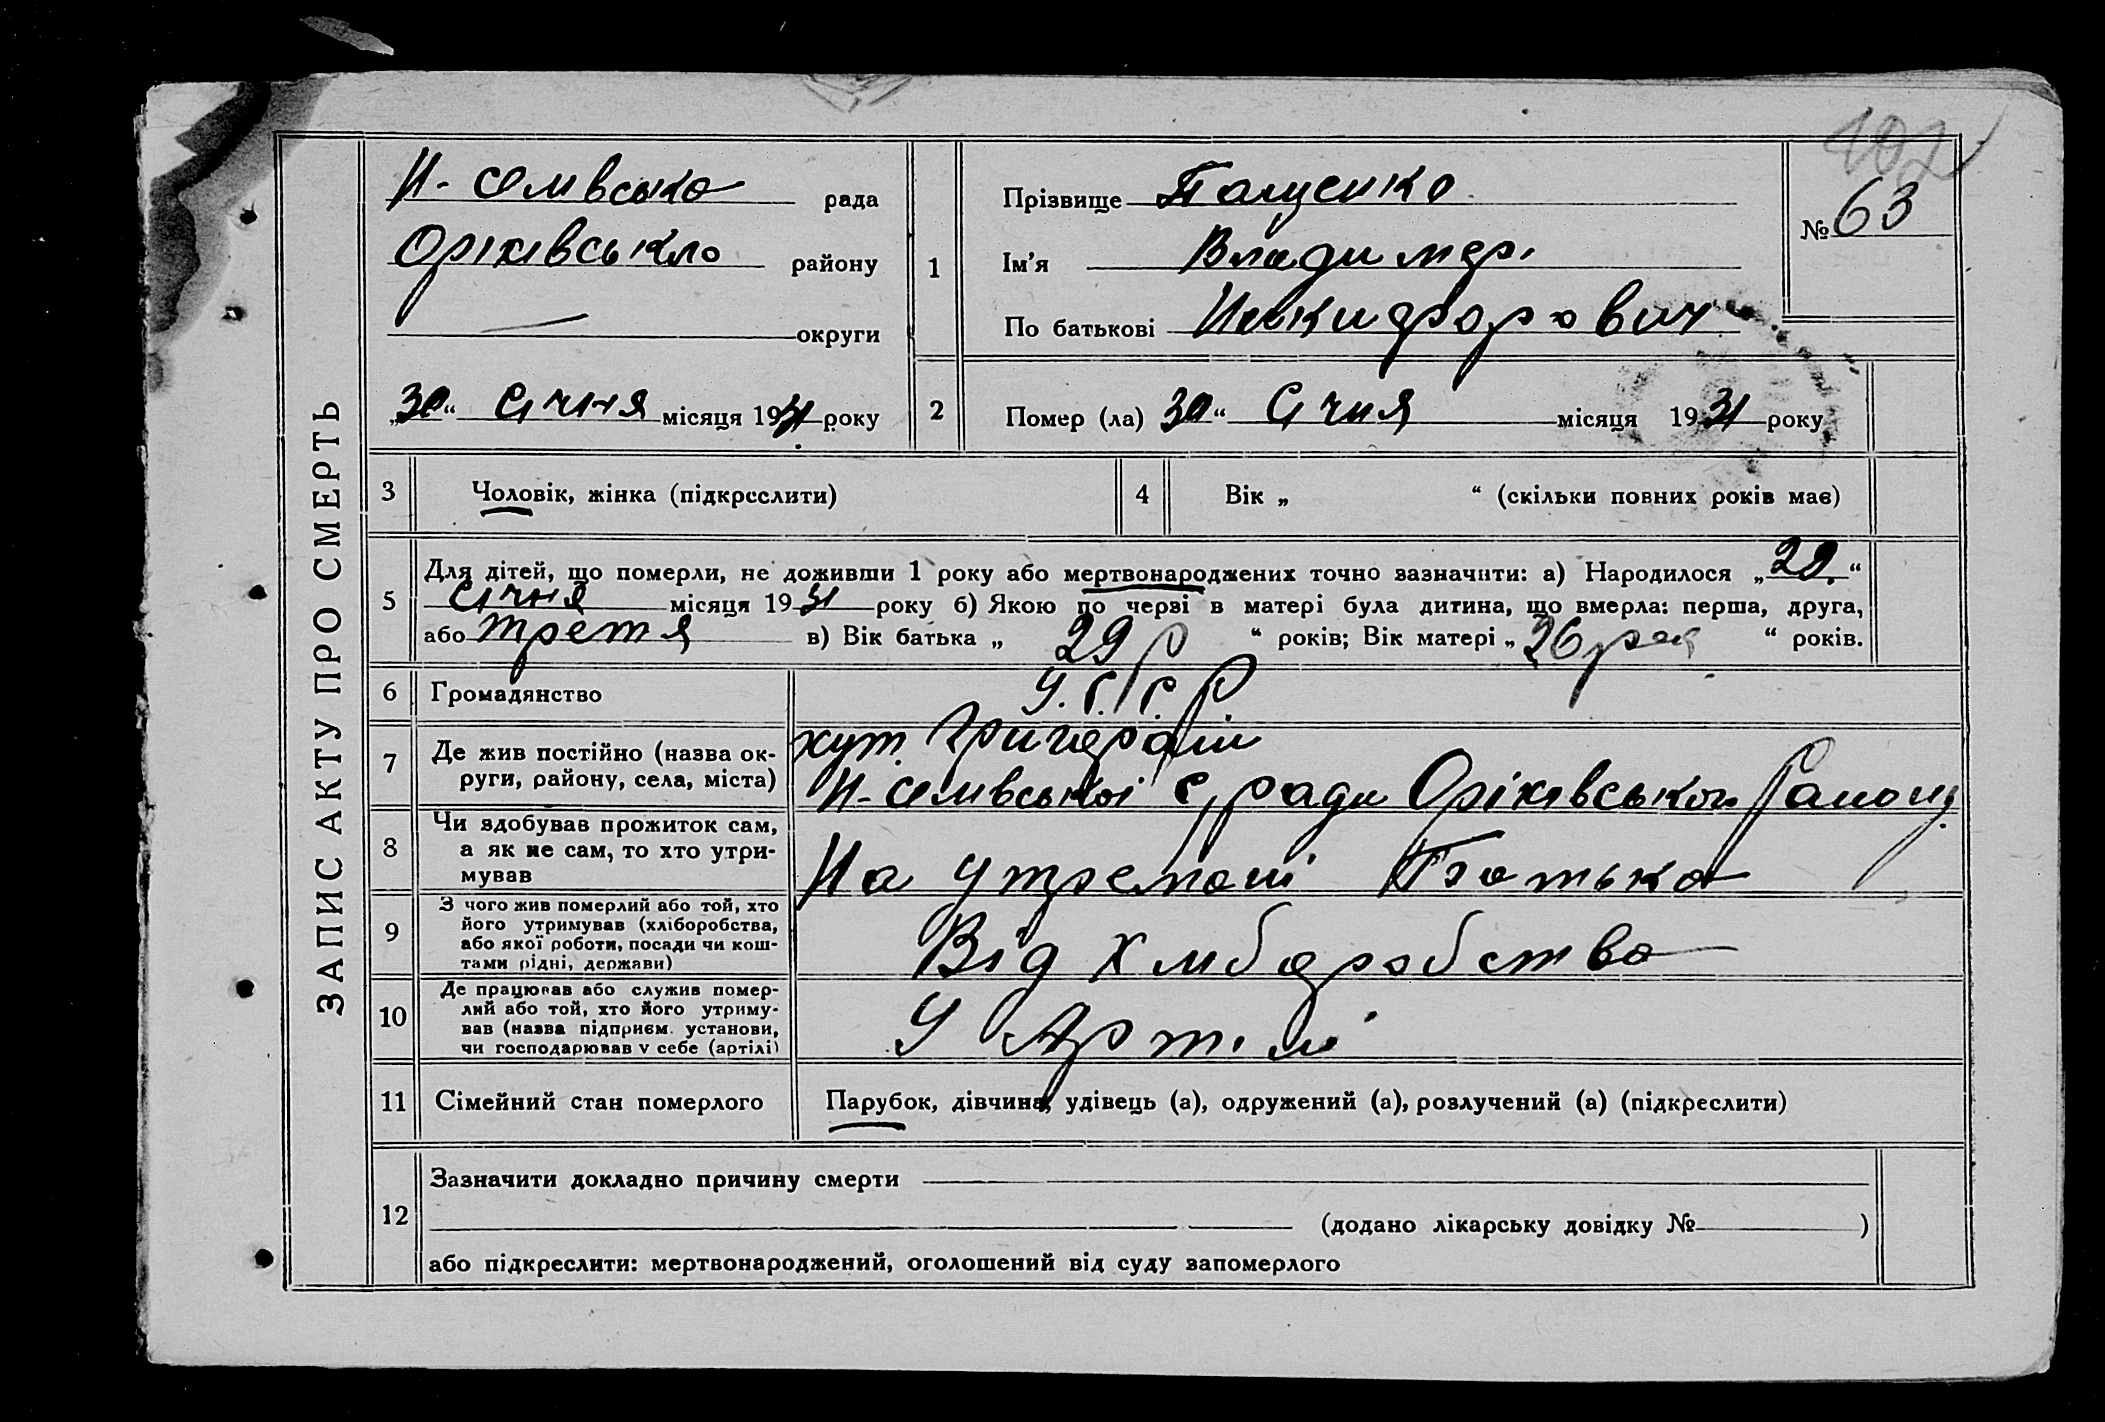 ЗАПИС АКТУ ПРО СМЕРТЬ
рада
Оріхівського району
округи
„30“ Січня місяця 1931 року
1
Прізвище Пащенко
Ім'я Владимер
По батькові Никифорович
№ 63
102
2
Помер (ла) 30“ Січня місяця 1931 року
3
Чоловік, жінка (підкреслити)
4
Вік „ “ (скільки повних років має)
5
Для дітей, що померли, не доживши 1 року або мертвонароджених точно зазначити: а) Народилося „29.“
Січня місяця 1931 року б) Якою по черві в матері була дитина, що вмерла: перша, друга,
або третя в) Вік батька „ 29 р “ років; Вік матері „ 26 “ років.
6
Громадянство
У.С.С.Р.
7
Де жив постійно (назва ок-
руги, району, села, міста)
хут.
с, ради Оріхівського Району
8
Чи здобував прожиток сам,
а як не сам, то хто утри-
мував
На утремані Батька
9
З чого жив померлий або той, хто
його утримував (хліборобства,
або якої роботи, посади чи кош-
тами рідні, держави)
Від хліборобства
10
Де працював або служив помер-
лий або той, хто його утриму-
вав (назва підприєм. установи,
чи господарював у себе (артілі)
У Артілі
11
Сімейний стан померлого
Парубок, дівчина, удівець (а), одружений (а), розлучений (а) (підкреслити)
12
Зазначити докладно причину смерти
(додано лікарську довідку № )
або підкреслити: мертвонароджений, оголошений від суду запомерлого